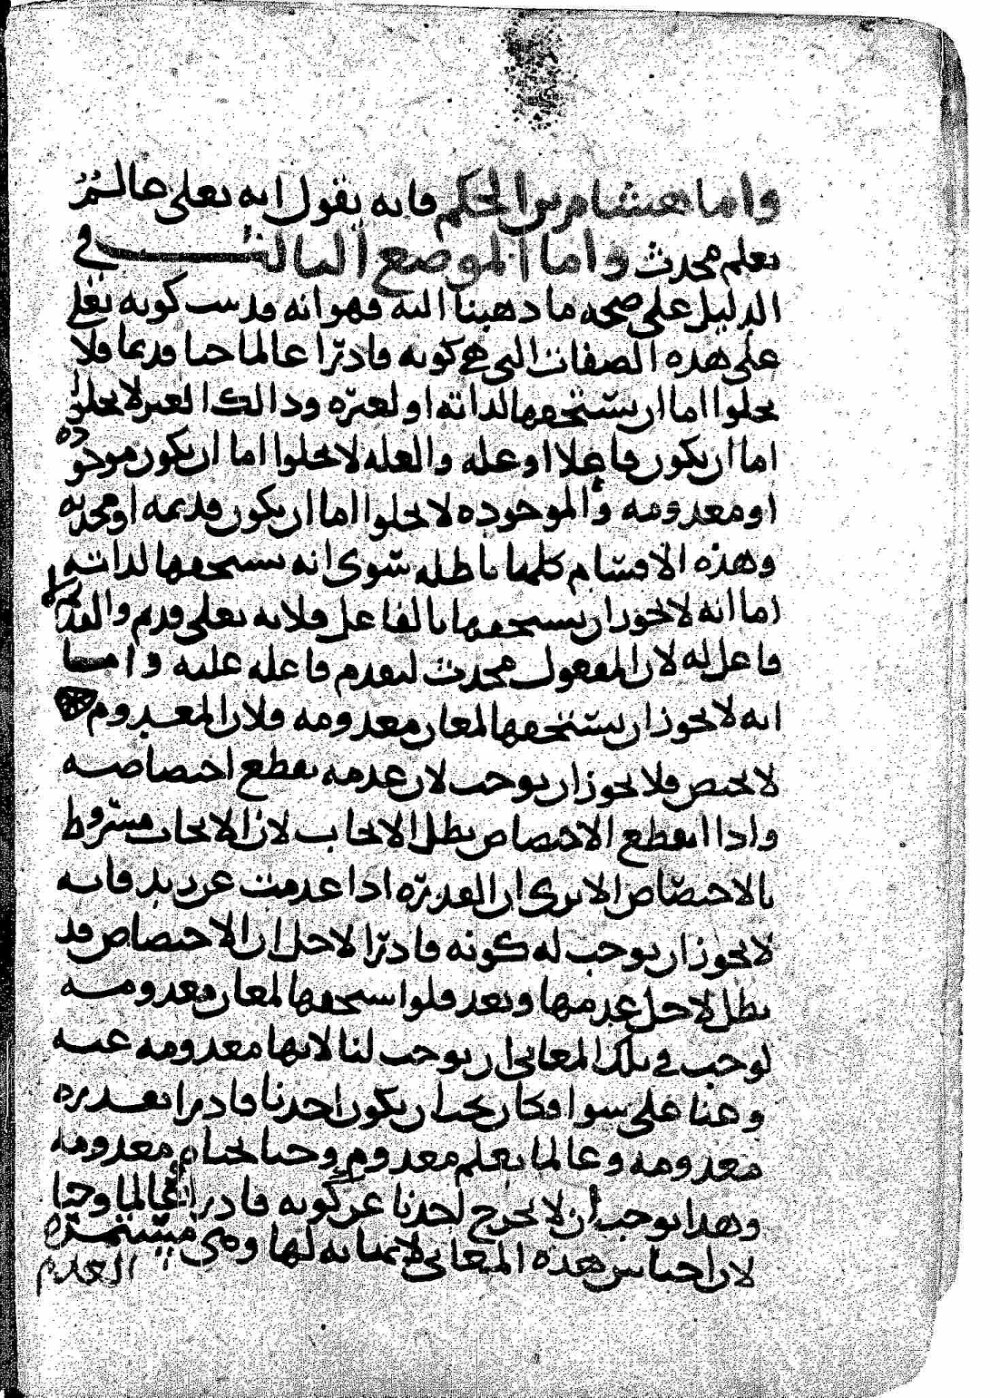 واما هشام بن الحكم فانه يقول انه تعلى عالم
بعلم محدث واما الموضع الثالث في
الدليل على صحه ما ذهبنا اليه فهو انه قد ثبت كونه تعلى
على هذه الصفات التي هي كونه قادرا عالما حيا قديما فلا
يخلوا اما ان يستحقها لذاته او لغيره وذالك الغير لا يخلوا
اما ان يكون فاعلا او عله والعله لا تخلوا اما ان يكون موجوده
او معدومه والموجوده لا تخلوا اما ان يكون قديمه او محدثه
وهذه الاقسام كلها باطله سوى انه يستحقها لذاته
اما انه لا يجوز ان يستحقها بالفاعل فلانه تعلى قديم والقديم لا
فاعل له لان المفعول محدث لتقدم فاعله عليه واما
انه لا يجوز ان يستحقها لمعان معدومه فلان المعدوم
لا يختص فلا يجوز ان يوجب لان عدمه يقطع اختصاصه
واذا انقطع الاختصاص بطل الايجاب لان الايجاب مشروط
بالاختصاص الا ترى ان القدره اذا عدمت عن زيد فانه
لا يجوز ان يوجب له كونه قادرا لاجل ان الاختصاص قد
بطل لاجل عدمها وبعد فلوا استحقها لمعان معدومه
لوجب في تلك المعاني ان يوجب لنا لانها معدومه عنه
وعنا على سوا فكان يجب ان يكون احدنا قادرا بقدره
معدومه وعالما بعلم معدوم وحيا بحياه معدومه
وهذا يوجب ان لا يخرج احدنا عن كونه قادرا عالما وحيا
لان اجناس هذه المعاني لا نهايه لها ومتى مستمره
العدم